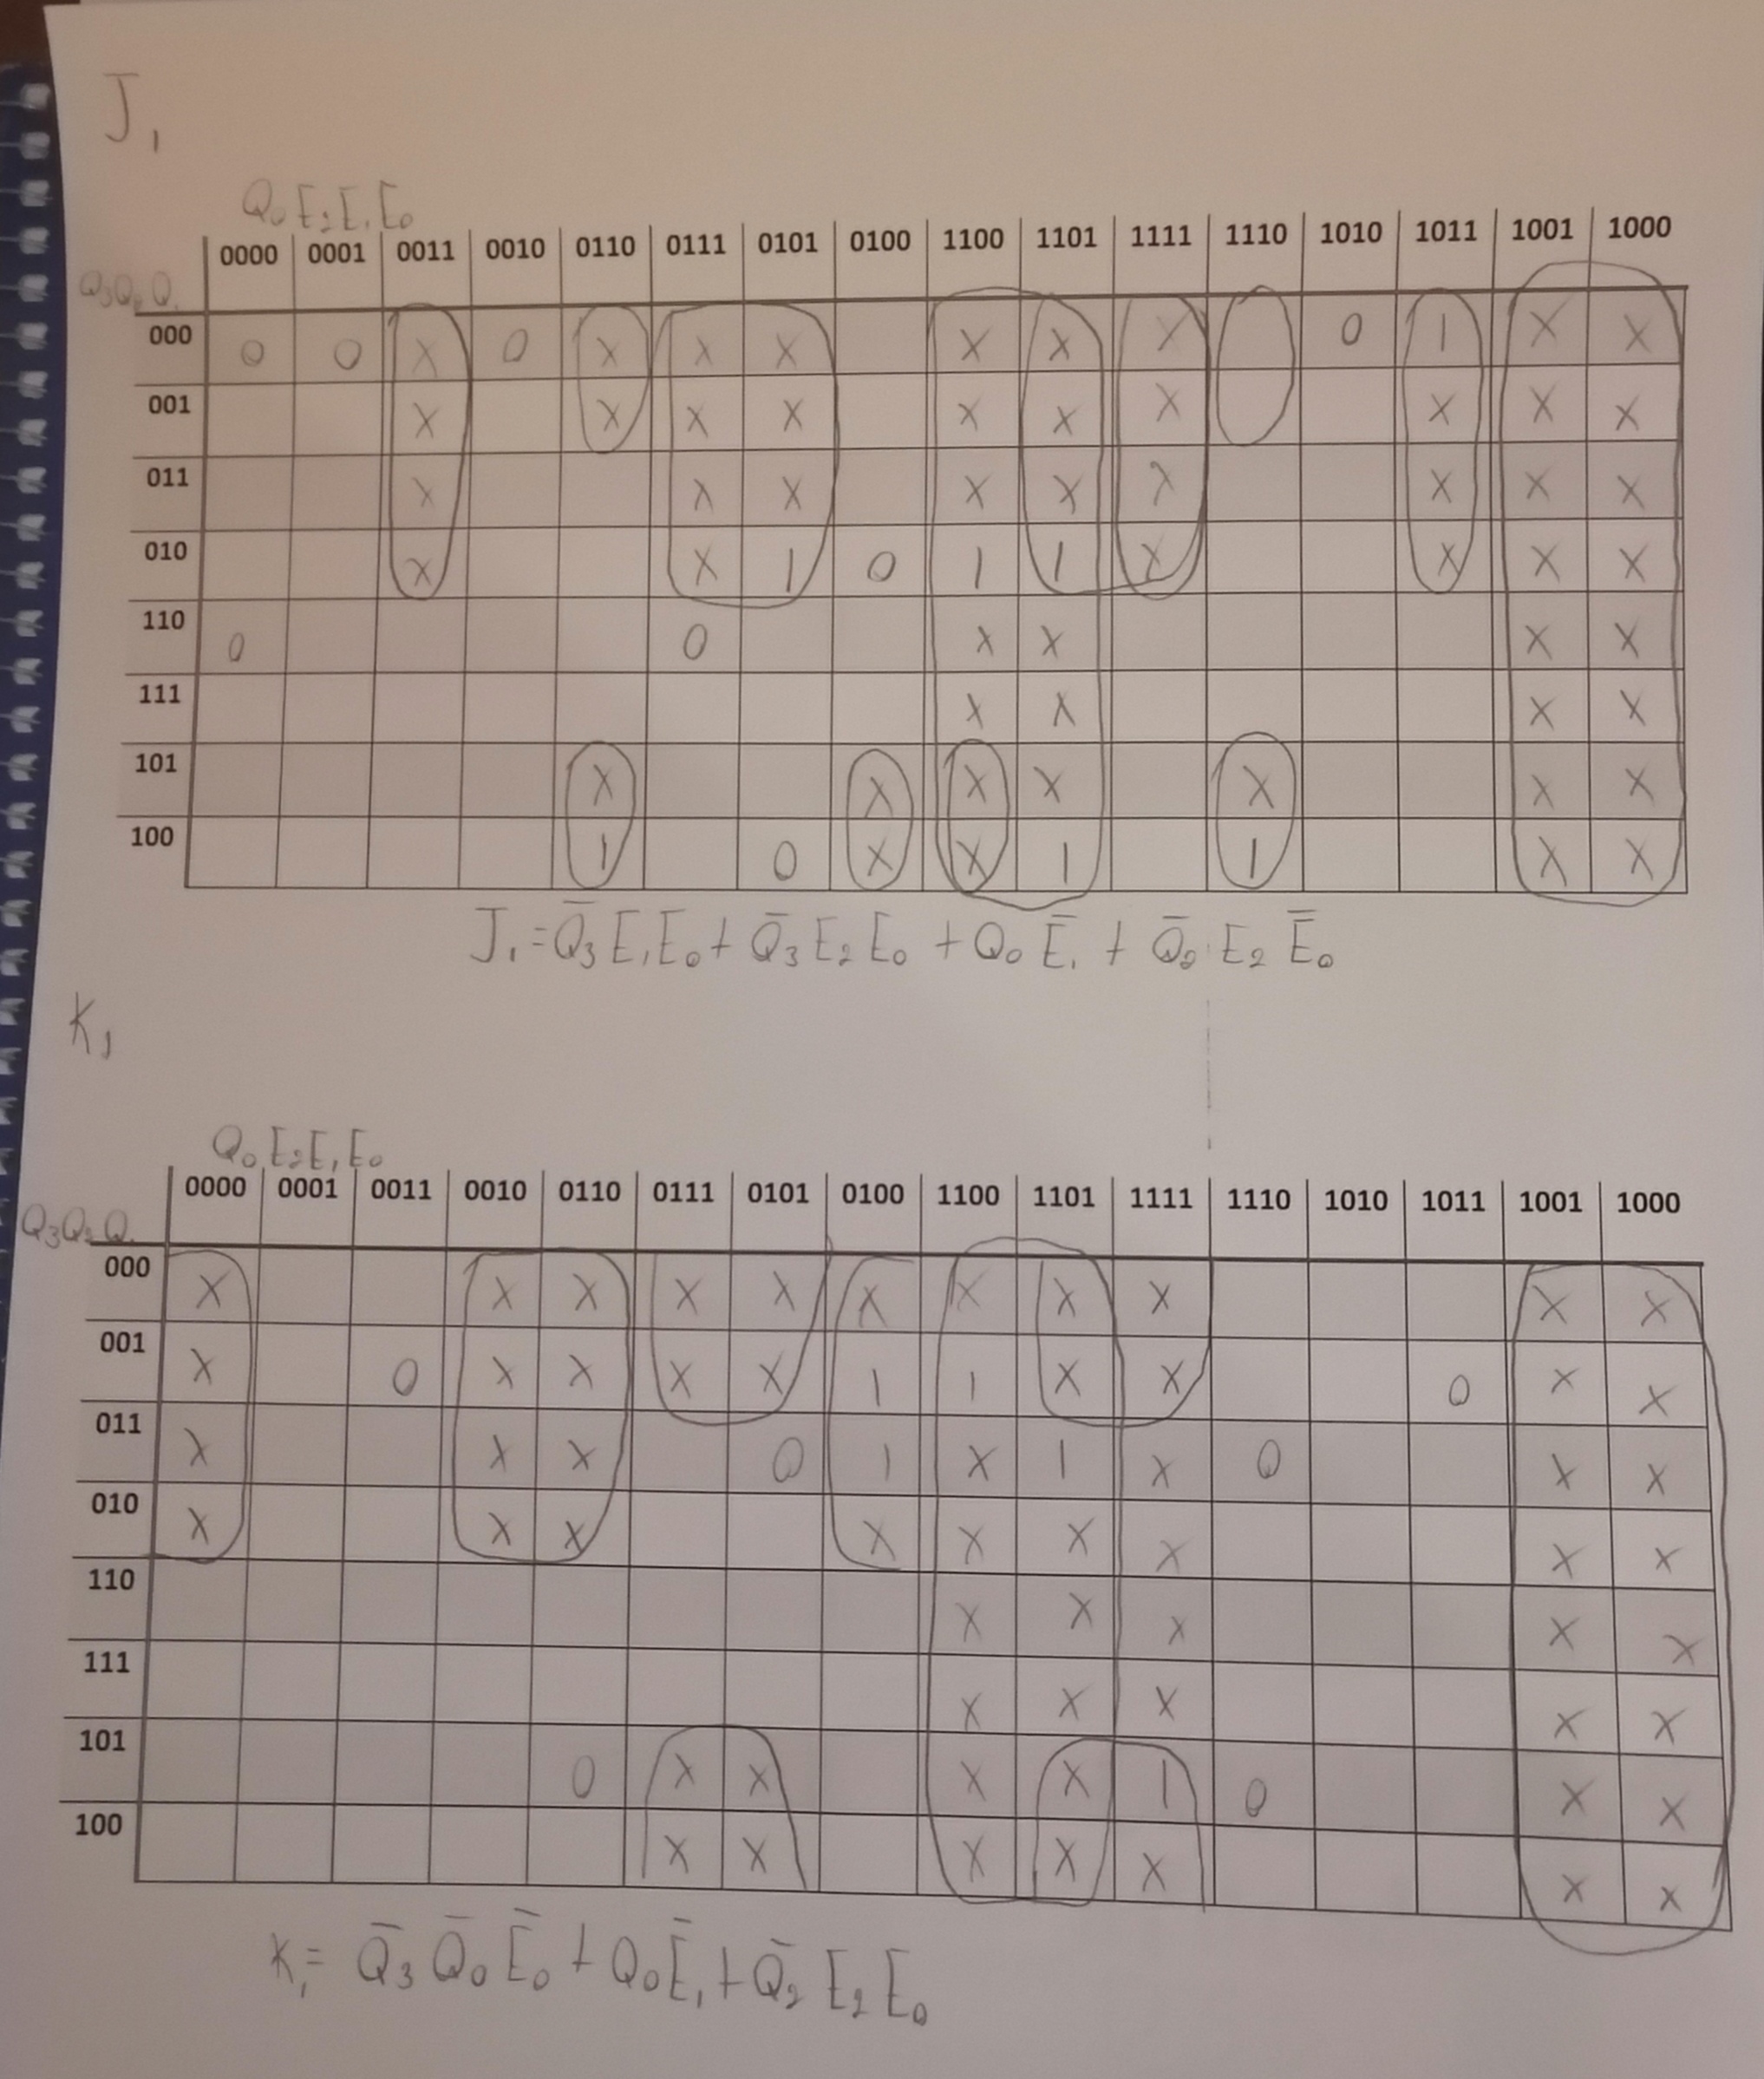 J₁
Q₀ E₂ E₁ E₀
0000 0001 0011 0010 0110 0111 0101 0100 1100 1101 1111 1110 1010 1011 1001 1000
Q₃Q₂Q₁
000 0 0 X 0 X X X X X X 0 1 X X
001 X X X X X X X X X X
011 X X X X X X X X X
010 X X 1 0 1 1 X X X X
110 0 0 X X X X
111 X X X X
101 X X X X X X X
100 1 0 X X 1 1 X X
J₁ = Q̄₃ E₁ E₀ + Q̄₃ E₂ E₀ + Q₀ Ē₁ + Q̄₂ E₂ Ē₀
K₁
Q₀ E₂ E₁ E₀
0000 0001 0011 0010 0110 0111 0101 0100 1100 1101 1111 1110 1010 1011 1001 1000
Q₃Q₂Q₁
000 X X X X X X X X X X X
001 X 0 X X X X 1 1 X X 0 X X
011 X X X 0 1 X 1 X 0 X X
010 X X X X X X X X X
110 X X X X X
111 X X X X X
101 0 X X X X 1 0 X X
100 X X X X X X X
K₁ = Q̄₃ Q̄₀ Ē₀ + Q₀ Ē₁ + Q̄₂ E₂ E₀